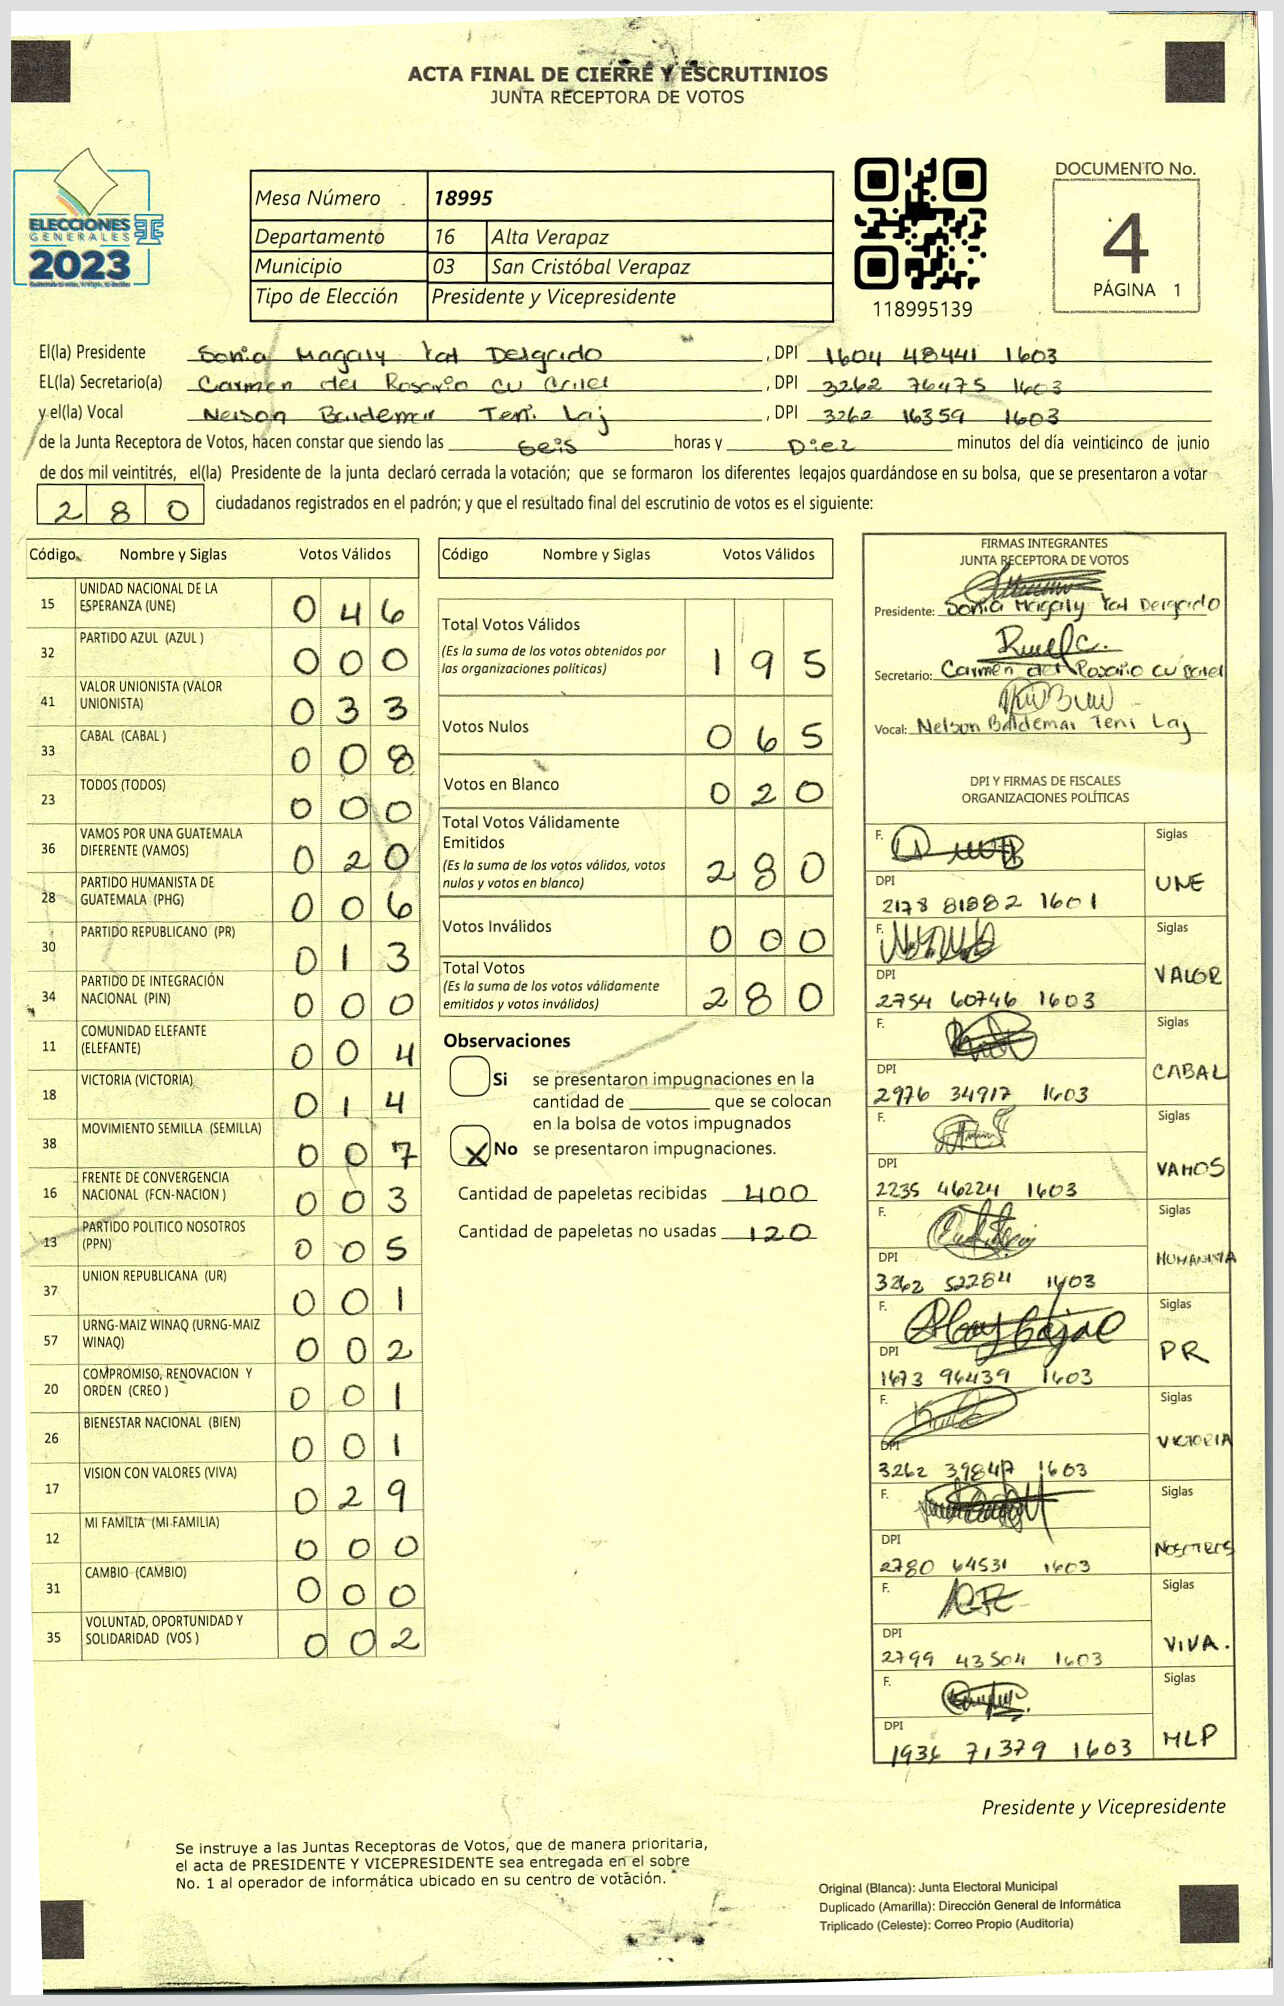 ACTA FINAL DE CIERRE Y ESCRUTINIOS
JUNTA RECEPTORA DE VOTOS
ELECCIONES
GENERALES
2023
Mesa Número 18995
Departamento 16 Alta Verapaz
Municipio 03 San Cristóbal Verapaz
Tipo de Elección Presidente y Vicepresidente
118995139
DOCUMENTO No.
4
PÁGINA 1
El(la) Presidente Sonia Magaly Kat Delgado, DPI 1604 48441 1603
EL(la) Secretario(a) Carmen del Rosario cu, DPI 3262 76475 1603
y el(la) Vocal Nelson Baldemar Teni Laj, DPI 3262 16359 1603
de la Junta Receptora de Votos, hacen constar que siendo las Seis horas y Diez minutos del día veinticinco de junio
de dos mil veintitrés, el(la) Presidente de la junta declaró cerrada la votación; que se formaron los diferentes legajos guardándose en su bolsa, que se presentaron a votar
280 ciudadanos registrados en el padrón; y que el resultado final del escrutinio de votos es el siguiente:
Código Nombre y Siglas Votos Válidos
15 UNIDAD NACIONAL DE LA ESPERANZA (UNE) 046
32 PARTIDO AZUL (AZUL ) 000
41 VALOR UNIONISTA (VALOR UNIONISTA) 033
33 CABAL (CABAL ) 008
23 TODOS (TODOS) 000
36 VAMOS POR UNA GUATEMALA DIFERENTE (VAMOS) 020
28 PARTIDO HUMANISTA DE GUATEMALA (PHG) 006
30 PARTIDO REPUBLICANO (PR) 013
34 PARTIDO DE INTEGRACIÓN NACIONAL (PIN) 000
11 COMUNIDAD ELEFANTE (ELEFANTE) 004
18 VICTORIA (VICTORIA) 014
38 MOVIMIENTO SEMILLA (SEMILLA) 007
16 FRENTE DE CONVERGENCIA NACIONAL (FCN-NACION ) 003
13 PARTIDO POLITICO NOSOTROS (PPN) 005
37 UNION REPUBLICANA (UR) 001
57 URNG-MAIZ WINAQ (URNG-MAIZ WINAQ) 002
20 COMPROMISO, RENOVACION Y ORDEN (CREO ) 001
26 BIENESTAR NACIONAL (BIEN) 001
17 VISION CON VALORES (VIVA) 029
12 MI FAMILIA (MI FAMILIA) 000
31 CAMBIO (CAMBIO) 000
35 VOLUNTAD, OPORTUNIDAD Y SOLIDARIDAD (VOS ) 002
Código Nombre y Siglas Votos Válidos
Total Votos Válidos 195
(Es la suma de los votos obtenidos por
las organizaciones políticas)
Votos Nulos 065
Votos en Blanco 020
Total Votos Válidamente
Emitidos 280
(Es la suma de los votos válidos, votos
nulos y votos en blanco)
Votos Inválidos 000
Total Votos 280
(Es la suma de los votos válidamente
emitidos y votos inválidos)
Observaciones
Si se presentaron impugnaciones en la
cantidad de ________ que se colocan
en la bolsa de votos impugnados
X No se presentaron impugnaciones.
Cantidad de papeletas recibidas 400
Cantidad de papeletas no usadas 120
FIRMAS INTEGRANTES
JUNTA RECEPTORA DE VOTOS
Presidente: Sonia Magaly Kat Delgado
Secretario: Carmen del Rosario cu
Vocal: Nelson Baldemar Teni Laj
DPI Y FIRMAS DE FISCALES
ORGANIZACIONES POLÍTICAS
F. Siglas
DPI UNE
2178 81882 1601
F. Siglas
DPI VALOR
2754 60746 1603
F. Siglas
DPI CABAL
2976 34917 1603
F. Siglas
DPI VAMOS
2235 46224 1603
F. Siglas
DPI HUMANISTA
3262 52284 1603
F. Siglas
DPI PR
1673 96439 1603
F. Siglas
DPI VICTORIA
3262 39847 1603
F. Siglas
DPI NOSOTROS
2780 64531 1603
F. Siglas
DPI VIVA.
2799 43504 1603
F. Siglas
DPI MLP
1936 71379 1603
Presidente y Vicepresidente
Se instruye a las Juntas Receptoras de Votos, que de manera prioritaria,
el acta de PRESIDENTE Y VICEPRESIDENTE sea entregada en el sobre
No. 1 al operador de informática ubicado en su centro de votación.
Original (Blanca): Junta Electoral Municipal
Duplicado (Amarilla): Dirección General de Informática
Triplicado (Celeste): Correo Propio (Auditoría)